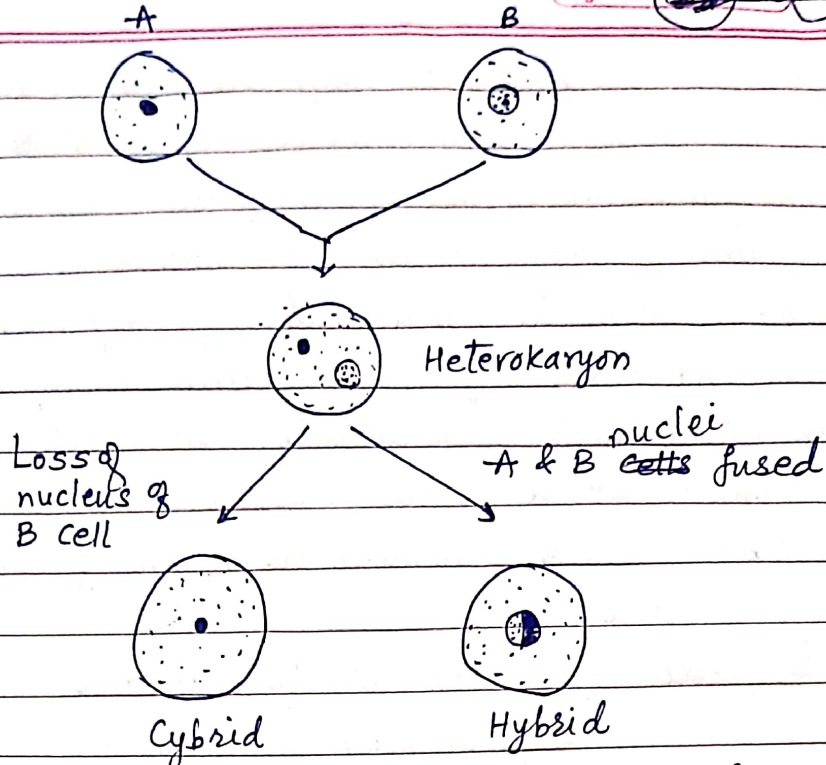 A
B
Heterokaryon
Loss of
nucleus of
B cell
nuclei
A & B cells fused
Cybrid
Hybrid